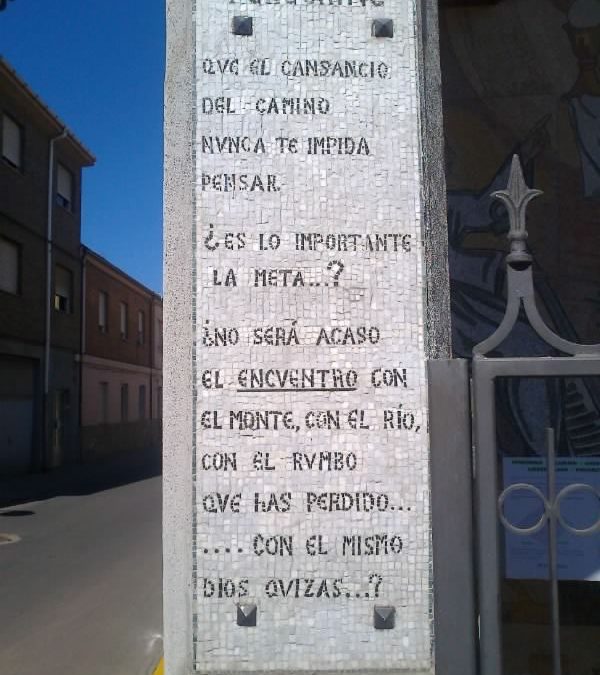 QVE EL CANSANCIO
DEL CAMINO
NVNCA TE IMPIDA
PENSAR.
¿ES LO IMPORTANTE
LA META...?
¿NO SERÁ ACASO
EL ENCVENTRO CON
EL MONTE, CON EL RÍO,
CON EL RVMBO
QVE HAS PERDIDO...
.... CON EL MISMO
DIOS QVIZAS...?